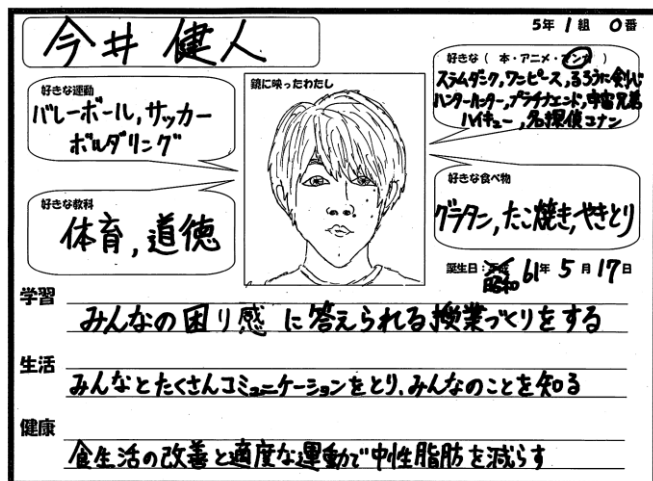 今井 健人
5年 1組 0番
好きな運動
バレーボール,サッカー
ボルダリング
鏡に映ったわたし
好きな ( 本・アニメ・マンガ )
スラムダンク,ワンピース,るろうに剣心
ハンターハンター,プラチナエンド,宇宙兄弟
ハイキュー,名探偵コナン
好きな教科
体育,道徳
好きな食べ物
グラタン,たこ焼き,やきとり
誕生日:平成 昭和 61年 5月 17日
学習
みんなの困り感に答えられる授業づくりをする
生活
みんなとたくさんコミュニケーションをとり、みんなのことを知る
健康
食生活の改善と適度な運動で中性脂肪を減らす